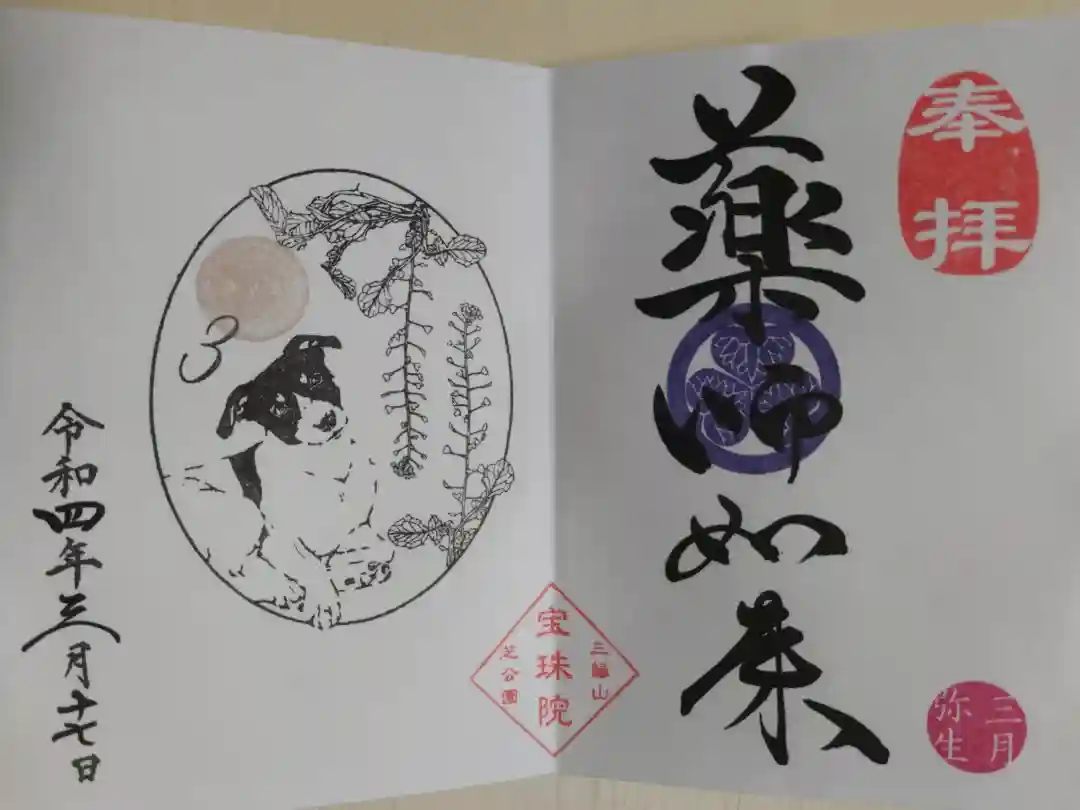 奉拝
薬師如来
三月
弥生
三縁山
宝珠院
芝公園
3
令和四年三月十七日